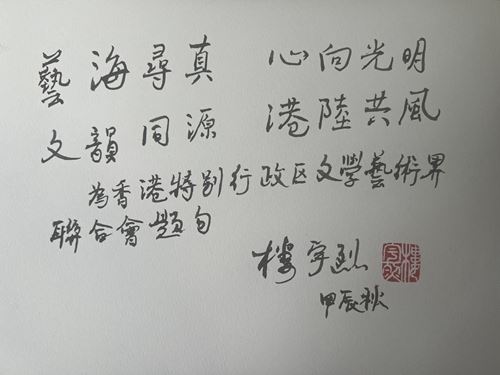 藝海尋真 心向光明
文韻同源 港陸共風
為香港特别行政区文學藝術界
聯合會題句
樓宇烈
甲辰秋